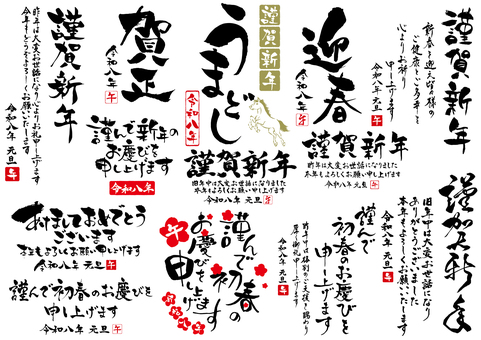 謹賀新年
新春を迎え皆様の
ご健康とご多幸を
心よりお祈り
申し上げます
令和八年 元旦
午
迎春
令和八年
午
謹賀新年
昨年は大変お世話になりました
本年もよろしくお願い申し上げます
令和八年 元旦
午
謹賀新年
うまどし
令和八年
謹賀新年
旧年中は大変お世話になりました
本年もよろしくお願い申し上げます
令和八年 元旦
午
賀正
令和八年
午
謹んで新年の
お慶びを
申し上げます
令和八年
昨年は大変お世話になり心よりお礼申し上げます
今年もどうぞよろしくお願い申し上げます
謹賀新年
令和八年 元旦
午
あけましておめでとう
ございます
本年もよろしくお願い申し上げます
令和八年 元旦
午
謹んで初春のお慶びを
申し上げます
令和八年 元旦
午
謹んで初春の
お慶びを
申し上げます
午
令和八年
謹んで
初春のお慶びを
申し上げます
昨年中は格別のご支援を賜わり
厚く御礼申し上げます
令和八年 元旦
午
謹加名新年
旧年中は大変お世話になり
ありがとうございました
本年もよろしくお願い申し上げます
令和八年 元旦
午